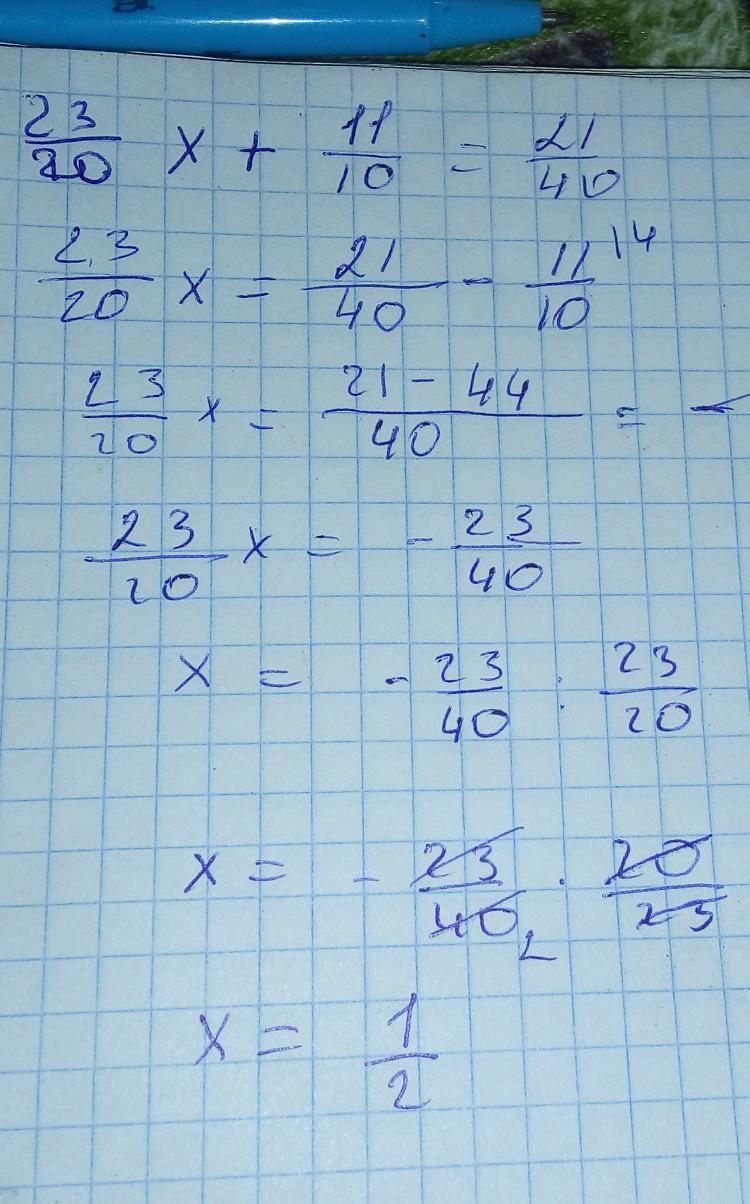 23/20 x + 11/10 = 21/40
23/20 x = 21/40 - 11/10 14
23/20 x = 21 - 44/40 = -
23/20 x = - 23/40
x = - 23/40 : 23/20
x = - 23/40 2 · 20/23
x = 1/2